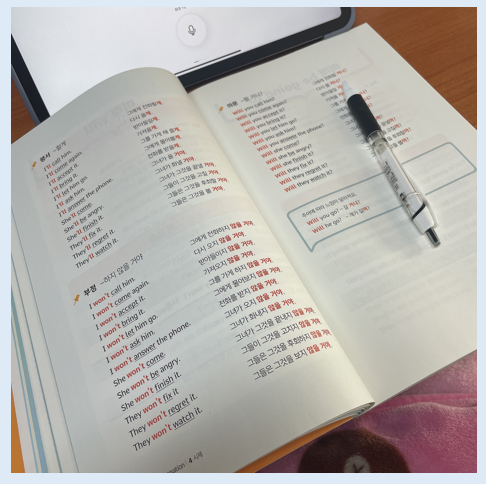 평서 ~할게
I'll call him.
I'll come again.
I'll accept it.
I'll bring it.
I'll let him go.
I'll ask him.
I'll answer the phone.
She'll come.
She'll be angry.
She'll finish it.
They'll fix it.
They'll regret it.
They'll watch it.
그에게 전화할게.
다시 올게.
받아들일게.
가져올게.
그를 가게 해 줄게.
그에게 물어볼게.
전화를 받을게.
그녀가 올 거야.
그녀가 화낼 거야.
그녀가 그것을 끝낼 거야.
그들이 그것을 고칠 거야.
그들은 그것을 후회할 거야.
그들은 그것을 볼 거야.
부정 ~하지 않을 거야
I won't call him.
I won't come again.
I won't accept it.
I won't bring it.
I won't let him go.
I won't ask him.
I won't answer the phone.
She won't come.
She won't be angry.
She won't finish it.
They won't fix it.
They won't regret it.
They won't watch it.
그에게 전화하지 않을 거야.
다시 오지 않을 거야.
받아들이지 않을 거야.
가져오지 않을 거야.
그를 가게 하지 않을 거야.
그에게 물어보지 않을 거야.
전화를 받지 않을 거야.
그녀가 오지 않을 거야.
그녀가 화내지 않을 거야.
그녀가 그것을 끝내지 않을 거야.
그들이 그것을 고치지 않을 거야.
그들은 그것을 후회하지 않을 거야.
그들은 그것을 보지 않을 거야.
4 시제
Will you call him?
Will you come again?
Will you accept it?
Will you bring it?
Will you let him go?
Will you ask him?
Will you answer the phone?
Will she come?
Will she be angry?
Will she finish it?
Will they fix it?
Will they regret it?
Will they watch it?
Will you go?
Will he go?